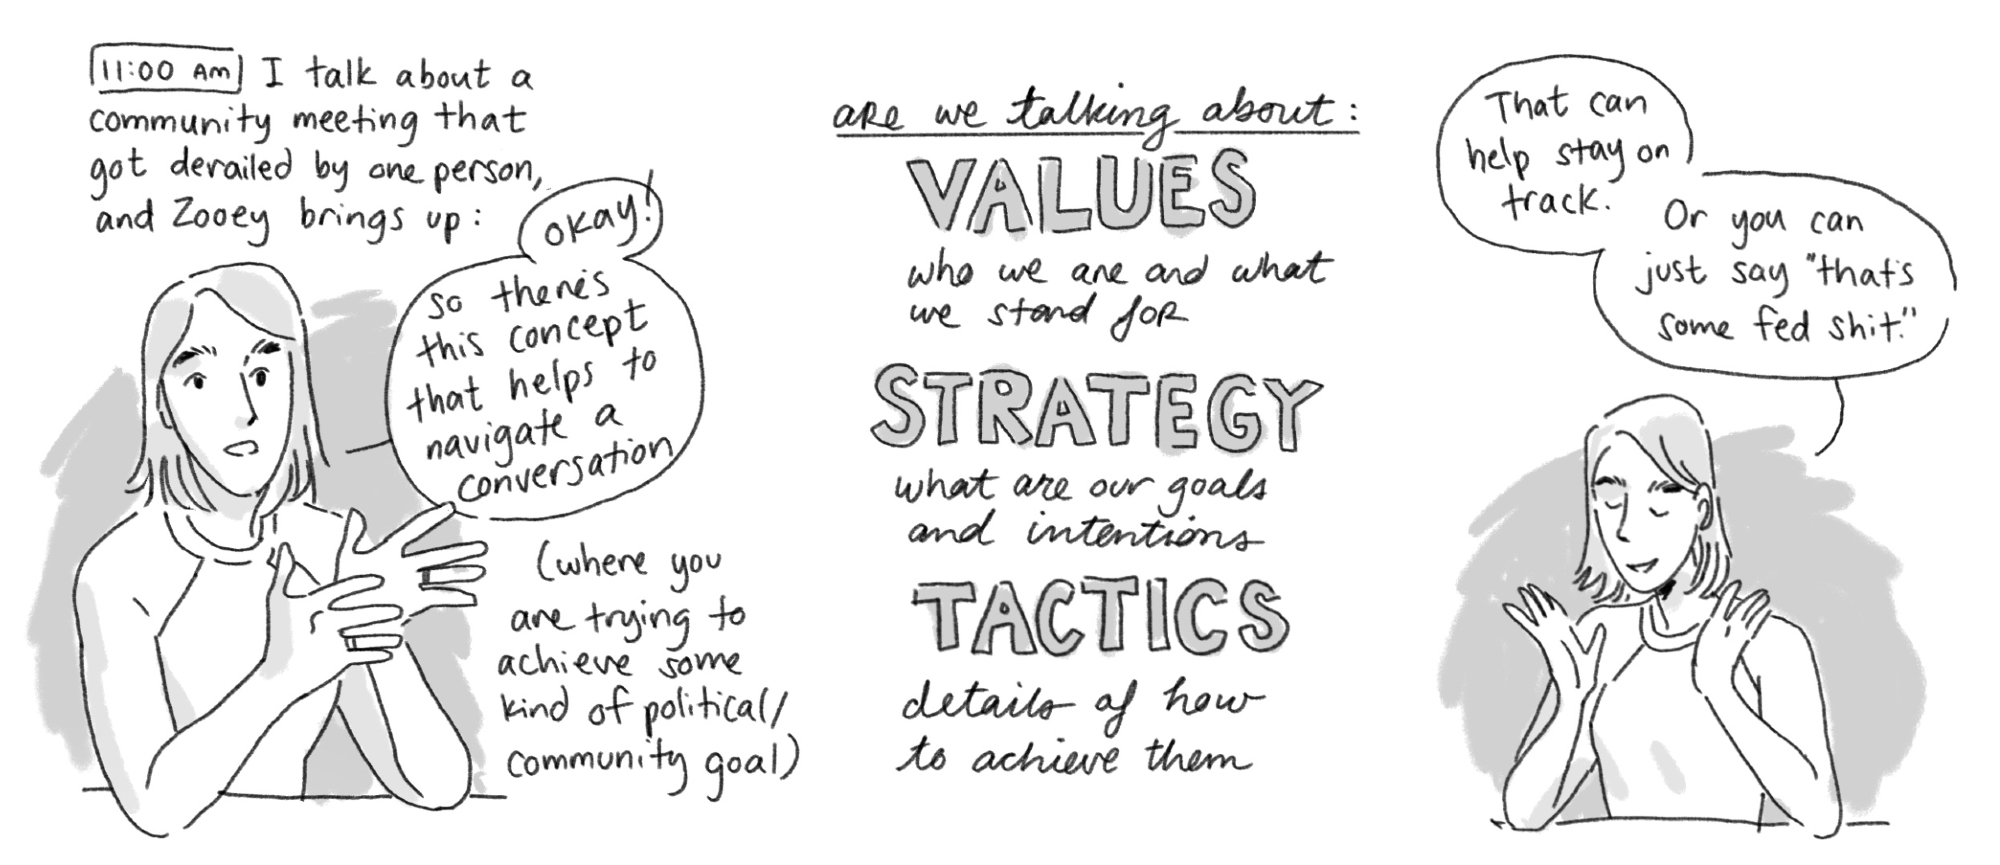 11:00 AM I talk about a
community meeting that
got derailed by one person,
and Zooey brings up:
okay!
so there's
this concept
that helps to
navigate a
conversation
(where you
are trying to
achieve some
kind of political/
community goal)
are we talking about:
VALUES
who we are and what
we stand for
STRATEGY
what are our goals
and intentions
TACTICS
details of how
to achieve them
That can
help stay on
track.
Or you can
just say "that's
some fed shit."